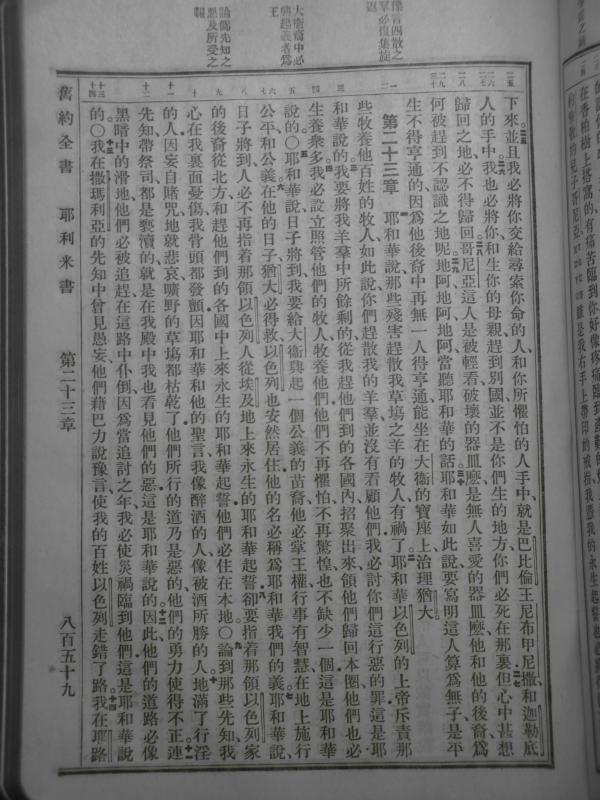 羣必復集旋
返
大衛裔中必
興起義者爲
王
論僞先知之
惡及所受之
報
下來並且我必將你交給尋索你命的人和你所懼怕的人手中、就是巴比倫王尼布甲尼撒和迦勒底
人的手中我也必將你和生你的母親趕到別國並不是你們生的地方你們必死在那裏但心中甚想
歸回之地必不得歸回哥尼亞這人是被輕看破壞的器皿麼是無人喜愛的器皿麼他和他的後裔爲
何被趕到不認識之地呢地阿地阿地阿當聽耶和華的話耶和華如此說要寫明這人算爲無子是平
生不得亨通的因爲他後裔中再無一人得亨通能坐在大衛的寶座上治理猶大
第二十三章 耶和華說那些殘害趕散我草場之羊的牧人有禍了耶和華以色列的上帝斥責那
些牧養他百姓的牧人如此說你們趕散我的羊羣並沒有看顧他們我必討你們這行惡的罪這是耶
和華說的我要將我羊羣中所餘剩的從我趕他們到的各國內招聚出來領他們歸回本圈他們也必
生養衆多我必設立照管他們的牧人牧養他們他們不再懼怕不再驚惶也不缺少一個這是耶和華
說的〇耶和華說日子將到我要給大衛興起一個公義的苗裔他必掌王權行事有智慧在地上施行
公平和公義在他的日子猶大必得救以色列也安然居住他的名必稱爲耶和華我們的義耶和華說
日子將到人必不再指着那領以色列人從埃及地上來永生的耶和華起誓卻要指着那領以色列家
的後裔從北方和趕他們到的各國中上來永生的耶和華起誓他們必住在本地〇論到那些先知我
心在我裏面憂傷我骨頭都發顫因耶和華和他的聖言我像醉酒的人像被酒所勝的人地滿了行淫
的人因妄自賭咒地就悲哀曠野的草場都枯乾了他們所行的道乃是惡的他們的勇力使得不正連
先知帶祭司都是褻瀆的就是在我殿中我也看見他們的惡這是耶和華說的因此他們的道路必像
黑暗中的滑地他們必被追趕在這路中仆倒因爲當追討之年我必使災禍臨到他們這是耶和華說
的〇我在撒瑪利亞的先知中曾見愚妄他們藉巴力說豫言使我的百姓以色列走錯了路我在耶路
舊約全書 耶利米書 第二十三章 八百五十九